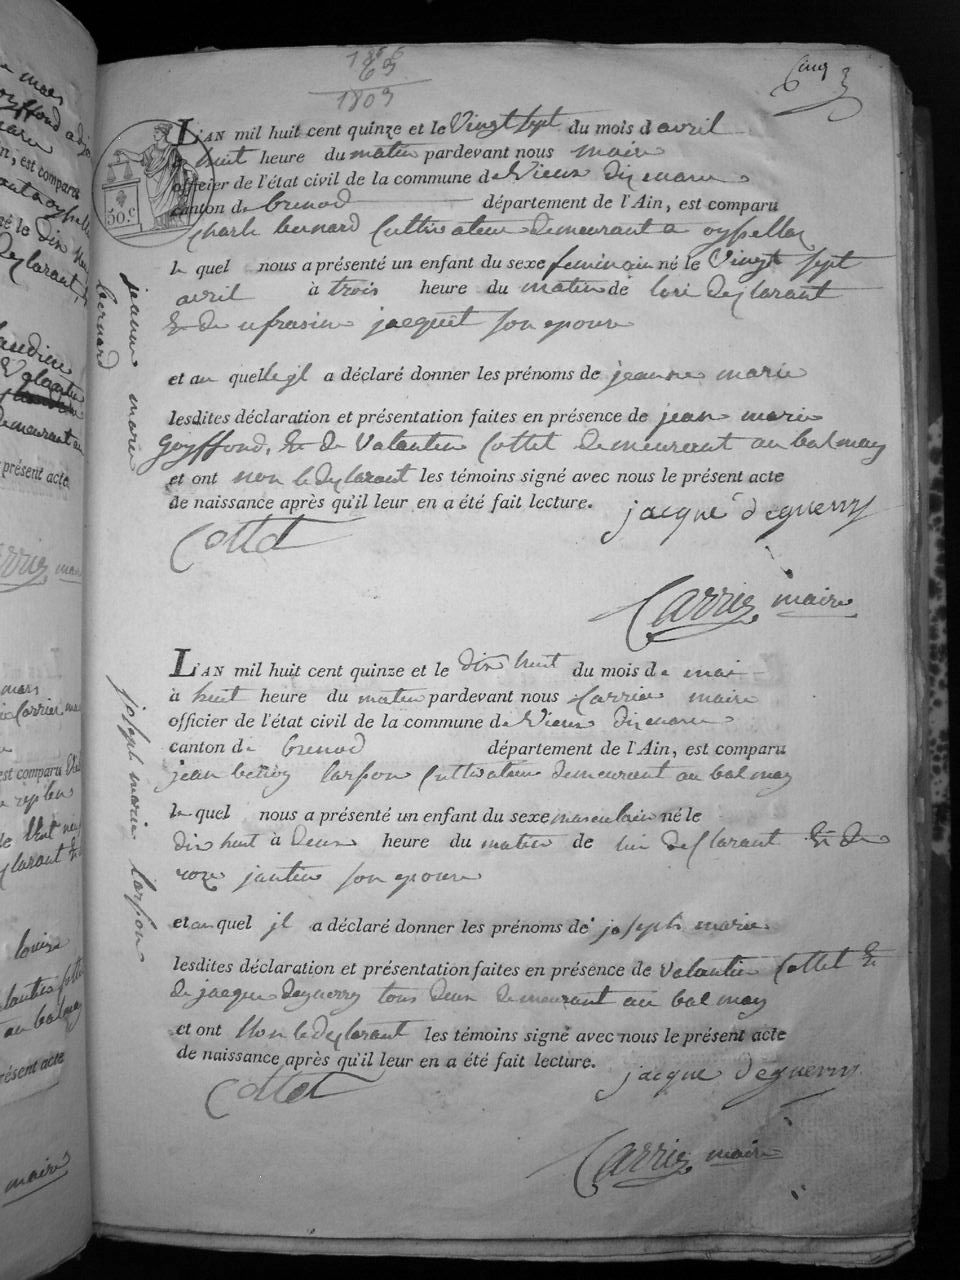 1809
Cinq
50.c
L'AN mil huit cent quinze et le Vingt sept du mois d avril
huit heure du matin pardevant nous maire
officier de l'état civil de la commune de Vieux d'izenave
canton de brenod département de l'Ain, est comparu
charle bernard Cultivateur demeurant a oysellaz
le quel nous a présenté un enfant du sexe feminain né le Vingt sept
avril à trois heure du matin de lui declarant
& de ufrasine jacquet son epouse
et au quelle jl a déclaré donner les prénoms de jeanne marie
lesdites déclaration et présentation faites en présence de jean marie
Goyffond, & de Valantin Cottet demeurant au balmay
et ont non le declarant les témoins signé avec nous le présent acte
de naissance après qu'il leur en a été fait lecture.
jacque deguerry
Cottet
Carrier maire
jeanne marie
bernard
L'AN mil huit cent quinze et le dix huit du mois de mai
à huit heure du matin pardevant nous Carrier maire
officier de l'état civil de la commune de Vieux d'izenave
canton de brenod département de l'Ain, est comparu
jean larson Cultivateur demeurant au balmay
le quel nous a présenté un enfant du sexe masculain né le
dix huit à deux heure du matin de lui declarant & de
roze jantin son epouse
et au quel jl a déclaré donner les prénoms de joseph marie
lesdites déclaration et présentation faites en présence de Valantin Cottet &
de jacque deguerry tous deux demeurant au balmay
et ont Non le declarant les témoins signé avec nous le présent acte
de naissance après qu'il leur en a été fait lecture.
jacque deguerry
Cottet
Carrier maire
joseph marie larson